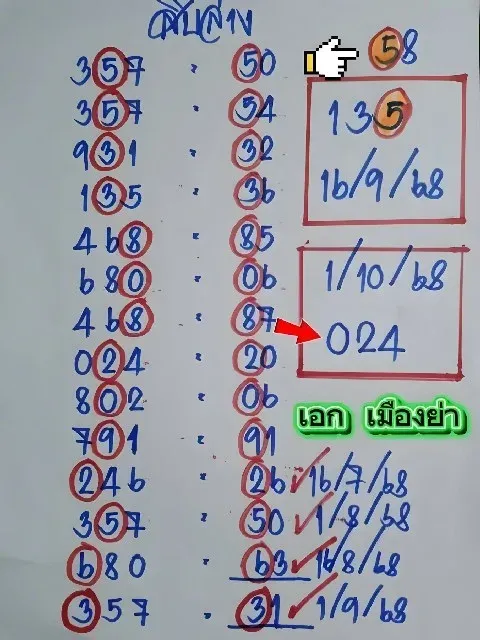 สิบล่าง
357 " 50
357 " 54
931 " 32
135 " 36
468 " 85
680 " 06
468 " 87
024 " 20
802 " 06
791 " 91
246 " 26 ✓ 16/7/68
357 " 50 ✓ 1/8/68
680 " 63 ✓ 16/8/68
357 " 31 ✓ 1/9/68
58
135
16/9/68
1/10/68
024
เอก เมืองย่า